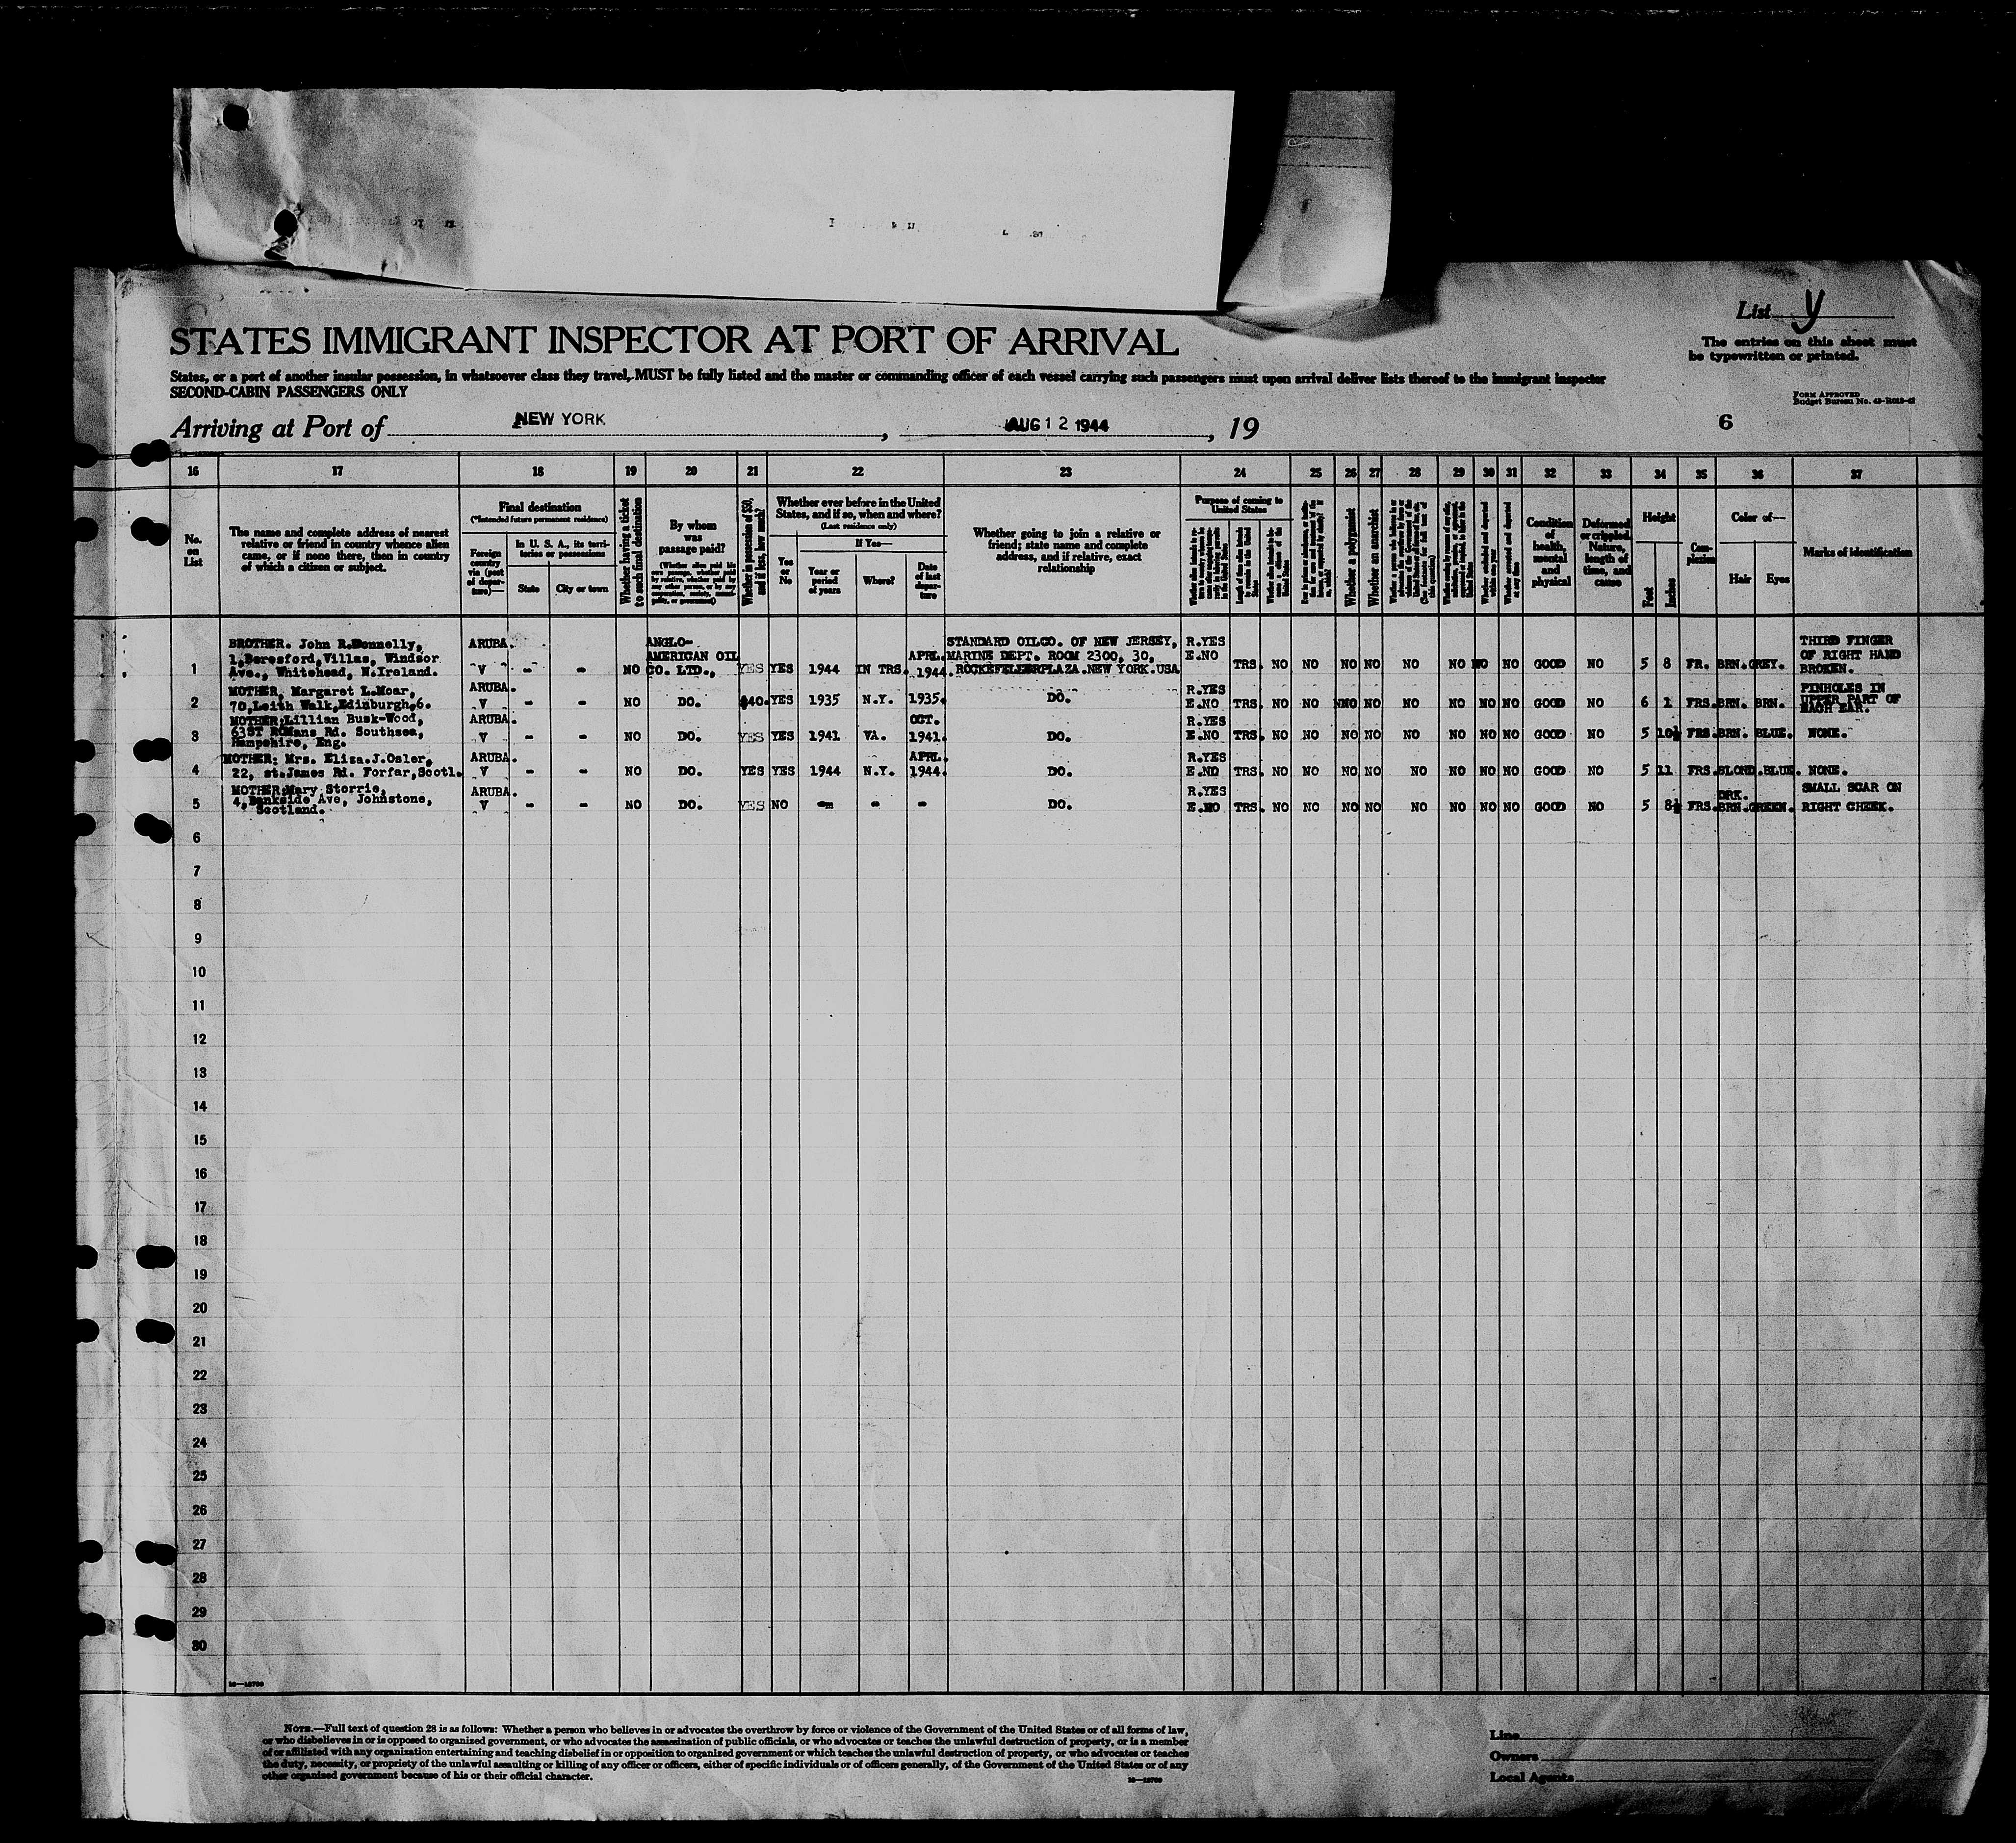 List y
The entries on this sheet must
be typewritten or printed.
STATES IMMIGRANT INSPECTOR AT PORT OF ARRIVAL
States, or a port of another insular possession, in whatsoever class they travel, MUST be fully listed and the master or commanding officer of each vessel carrying such passengers must upon arrival deliver lists thereof to the immigrant inspector
SECOND-CABIN PASSENGERS ONLY
FORM APPROVED
Budget Bureau No.
Arriving at Port of NEW YORK, AUG 12 1944, 19
6
16 17 18 19 20 21 22 23 24 25 26 27 28 29 30 31 32 33 34 35 36 37
No. on List
The name and complete address of nearest relative or friend in country whence alien came, or if none there, then in country of which a citizen or subject.
Final destination
(*Intended future permanent residence)
Foreign country via (port of departure)—
In U. S. A., its territories or possessions
State
City or town
Whether having a ticket to such final destination
By whom was passage paid?
(Whether alien paid his own passage, whether paid by relative, whether paid by any other person, or by any corporation, society, municipality, or government)
Whether in possession of $50, and if less, how much?
Whether ever before in the United States, and if so, when and where?
(Last residence only)
Yes or No
If Yes—
Year or period of years
Where?
Date of last departure
Whether going to join a relative or friend; state name and complete address, and if relative, exact relationship
Purpose of coming to United States
Whether a polygamist
Whether an anarchist
Condition of health, mental and physical
Deformed or crippled. Nature, length of time, and cause
Height
Feet
Inches
Complexion
Color of—
Hair
Eyes
Marks of identification
1 BROTHER. John R.Donnelly, 1,Beresford,Villas, Windsor Ave., Whitehead, N.Ireland. ARUBA. V - - NO ANGLO-AMERICAN OIL CO. LTD., YES YES 1944 IN TRS. APRL. 1944. STANDARD OILCO. OF NEW JERSEY, MARINE DEPT. ROOM 2300, 30, ROCKEFELLERPLAZA.NEW YORK.USA R.YES E.NO TRS. NO NO NO NO NO NO NO NO GOOD NO 5 8 FR. BRN. GREY. THIRD FINGER OF RIGHT HAND BROKEN.
2 MOTHER, Margaret L.Moar, 70,Leith Walk,Edinburgh,6. ARUBA. V - - NO DO. $40. YES 1935 N.Y. 1935. DO. R.YES E.NO TRS. NO NO NNO NO NO NO NO NO GOOD NO 6 1 FRS. BRN. BRN. PINHOLES IN UPPER PART OF EACH EAR.
3 MOTHER;Lillian Busk-Wood, 63ST ROMans Rd. Southsea, Hampshire, Eng. ARUBA. V - - NO DO. YES YES 1941 VA. OCT. 1941. DO. R.YES E.NO TRS. NO NO NO NO NO NO NO NO GOOD NO 5 10½ FRS. BRN. BLUE. NONE.
4 MOTHER; Mrs. Eliza.J.Osler, 22, st.James Rd. Forfar,Scotl. ARUBA. V - - NO DO. YES YES 1944 N.Y. APRL. 1944. DO. R.YES E.NO TRS. NO NO NO NO NO NO NO NO GOOD NO 5 11 FRS. BLOND. BLUE. NONE.
5 MOTHER;Mary Storrie, 4,Bankside Ave, Johnstone, Scotland. ARUBA. V - - NO DO. YES NO - - - DO. R.YES E.NO TRS. NO NO NO NO NO NO NO NO GOOD NO 5 8½ FRS. DRK. BRN. GREEN. SMALL SCAR ON RIGHT CHEEK.
6
7
8
9
10
11
12
13
14
15
16
17
18
19
20
21
22
23
24
25
26
27
28
29
30
NOTE.—Full text of question 28 is as follows: Whether a person who believes in or advocates the overthrow by force or violence of the Government of the United States or of all forms of law,
or who disbelieves in or is opposed to organized government, or who advocates the assassination of public officials, or who advocates or teaches the unlawful destruction of property, or is a member
of or affiliated with any organization entertaining and teaching disbelief in or opposition to organized government or which teaches the unlawful destruction of property, or who advocates or teaches
the duty, necessity, or propriety of the unlawful assaulting or killing of any officer or officers, either of specific individuals or of officers generally, of the Government of the United States or of any
other organized government because of his or their official character.
Line
Owners
Local Agents